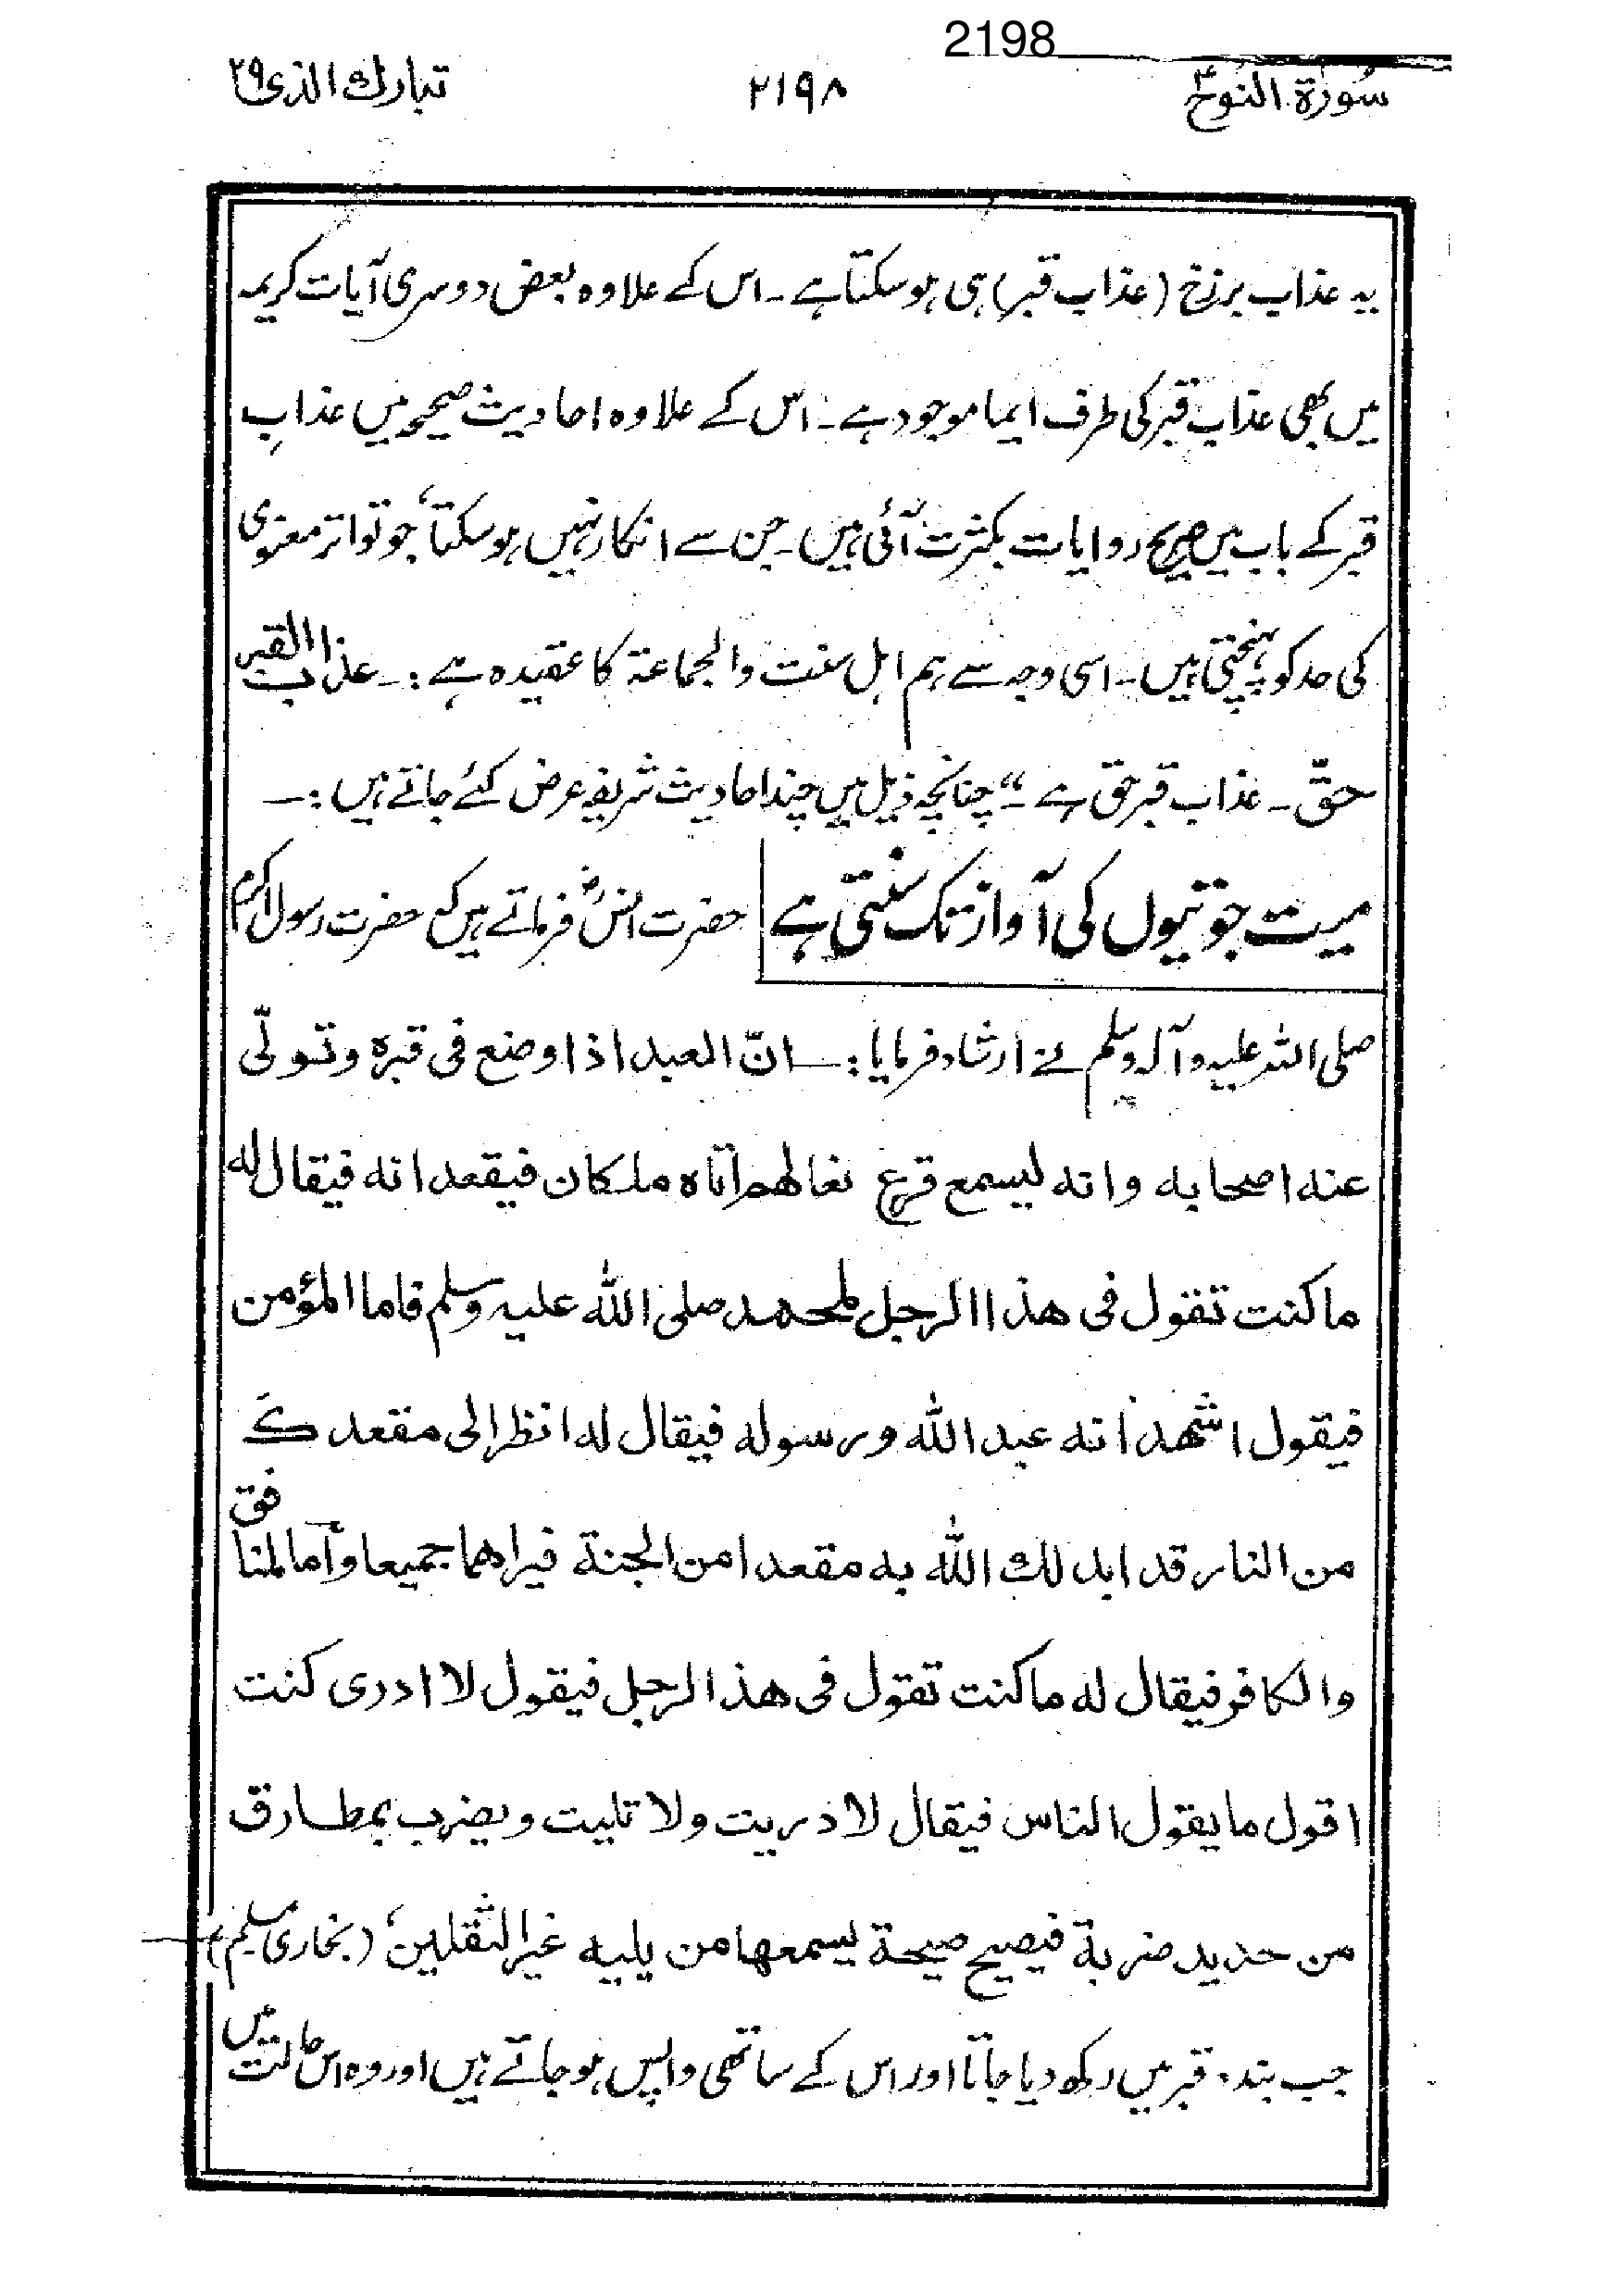 2198
سُورة النوح ۲۱۹۸ تبارك الذى ۲۹
یہ عذاب برزخ (عذاب قبر) ہی ہو سکتا ہے۔ اس کے علاوہ بعض دوسری آیات کریمہ
میں بھی عذاب قبر کی طرف ایما موجود ہے۔ اس کے علاوہ احادیث صحیحہ میں عذابِ
قبر کے باب میں صریح روایات بکثرت آئی ہیں۔ جن سے انکار نہیں ہو سکتا، جو تواتر معنوی
کی حد کو پہنچتی ہیں۔ اسی وجہ سے ہم اہل سنت والجماعۃ کا عقیدہ ہے :۔ عذاب القبر
حقّ۔ عذاب قبر حق ہے ۔" چنانچہ ذیل میں چند احادیث شریفہ عرض کئے جاتے ہیں :۔
میت جوتیوں کی آواز تک سنتی ہے حضرت انسؓ فرماتے ہیں کہ حضرت رسول اکرم
صلی اللہ علیہ وآلہ وسلم نے ارشاد فرمایا :۔ انّ العبد اذا وضع فى قبره وتولّى
عنه اصحابه وانه ليسمع قرع نعالهم اتاه ملكان فيقعدانه فيقال له
ما كنت تقول فى هذا الرجل لمحمد صلى الله عليه وسلم فاما المؤمن
فيقول اشهد انه عبد الله ورسوله فيقال له انظر الى مقعدكَ
من النار قد ابدلك الله به مقعدا من الجنة فيراهما جميعا وأما المنافق
والكافر فيقال له ما كنت تقول فى هذا الرجل فيقول لا ادرى كنت
اقول ما يقول الناس فيقال لا دريت ولا تليت ويضرب بمطارق
من حديد ضربة فيصيح صيحة يسمعها من يليه غير الثقلين ، (بخاری مسلم)
جب بندہ قبر میں رکھ دیا جاتا اور اس کے ساتھی واپس ہو جاتے ہیں اور وہ اس حالت میں